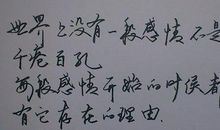 世界上没有一段感情不是
千疮百孔
每段感情开始的时候都
有它存在的理由.